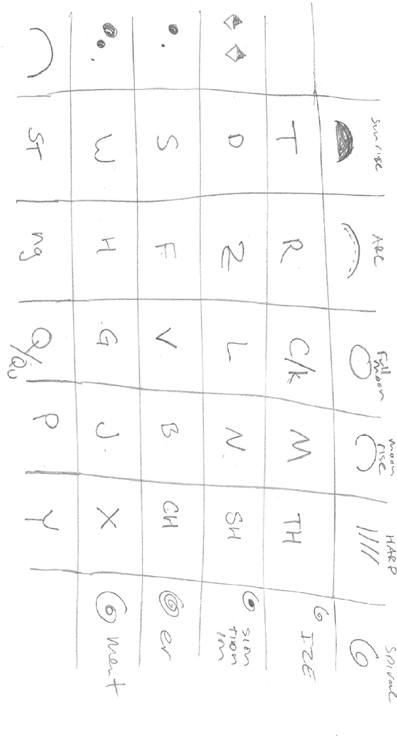 Sunrise ARC Full moon moon rise HARP Spiral
T R C/k M TH IZE
D Z L N SH tion
S F V B CH er
W H G J X ment
ST ng Q/Qu P Y